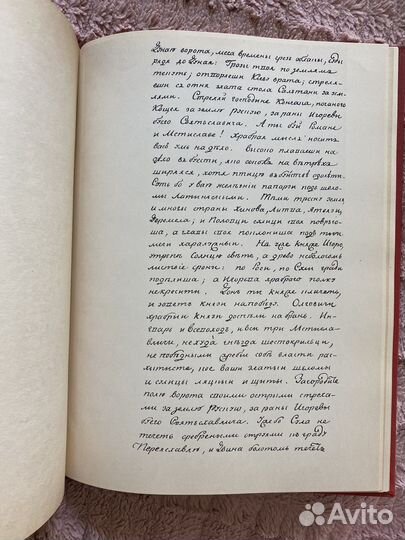 Дунаю ворота, меча времены чрезъ облакы, суды
рядя до Дуная. Грозы твоя по землямъ
текутъ; отворяеши Кіеву врата; стреля-
еши съ отня злата стола Салтани за зем-
лями. Стреляй господине Кончака, поганого
Кощея за землю Рускую, за раны Игоревы
буего Святъславлича. А ты буй Романе
и Мстиславе! храбрая мысль носитъ
васъ умъ на дѣло. Высоко плаваеши на
дѣло въ буести, яко соколъ на вѣтрехъ
ширяяся, хотя птицю въ буйствѣ одолѣти.
Суть бо у ваю желѣзныи папорзи подъ шело-
мы Латиньскими. Тѣми тресну земля,
и многы страны Хинова, Литва, Ятвязи,
Деремела, и Половци сулици своя повръго-
ша, а главы своя поклониша подъ тыи
мечи харалужныи. Нъ уже княже Игорю,
утрпѣ солнцю свѣтъ, а древо не бологомъ
листвіе срони: по Рсіи, по Сули гради
подѣлиша; а Игорева храбраго полку
не кресити. Донъ ти княже кличетъ,
и зоветъ князи на побѣду. Олговичи
храбрыи князи доспѣли на брань. Ин-
гварь и Всеволодъ, и вси три Мстисла-
вличи, не худа гнѣзда шестокрильци,
не побѣдными жребіи собѣ власти рас-
хытисте, кое ваши златыи шеломы
и сулицы ляцкіи и щиты. Загородите
полю ворота своими острыми стрела-
ми за землю Рускую, за раны Игоревы
буего Святъславлича. Уже бо Сула не
течетъ сребреными струями къ граду
Переяславлю, и Двина болотомъ течетъ
Avito